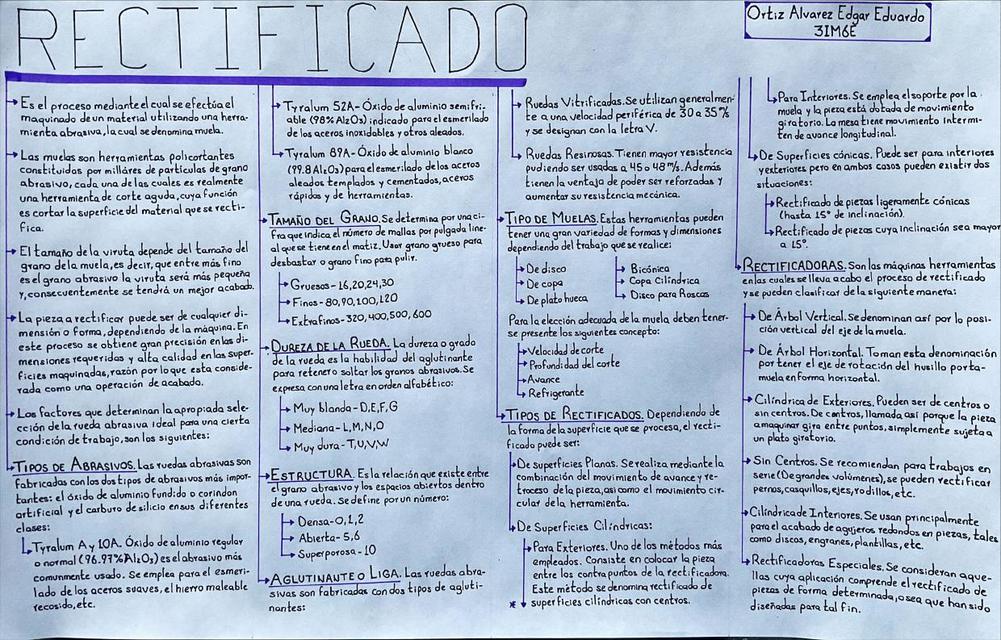 RECTIFICADO
Ortiz Alvarez Edgar Eduardo
3IM6E
Es el proceso mediante el cual se efectúa el
maquinado de un material utilizando una herra-
mienta abrasiva, la cual se denomina muela.
Las muelas son herramientas policortantes
constituidas por millares de particulas de grano
abrasivo, cada una de las cuales es realmente
una herramienta de corte aguda, cuya función
es cortar la superficie del material que se recti-
fica.
El tamaño de la viruta depende del tamaño del
grano de la muela, es decir, que entre más fino
es el grano abrasivo la viruta será más pequeña
y, consecuentemente se tendrá un mejor acabado.
La pieza a rectificar puede ser de cualquier di-
mensión o forma, dependiendo de la máquina. En
este proceso se obtiene gran precisión en las di-
mensiones requeridas y alta calidad en las super-
ficies maquinadas, razón por lo que esta conside-
rada como una operación de acabado.
Los factores que determinan la apropiada sele-
cción de la rueda abrasiva ideal para una cierta
condición de trabajo, son los siguientes:
TIPOS DE ABRASIVOS. Las ruedas abrasivas son
fabricadas con los dos tipos de abrasivos más impor-
tantes: el óxido de aluminio fundido o corindon
artificial y el carburo de silicio en sus diferentes
clases:
Tyralum A y 10A. Óxido de aluminio regular
o normal (96.97% Al2O3) es el abrasivo más
comunmente usado. Se emplea para el esmeri-
lado de los aceros suaves, el hierro maleable
recosido, etc.
Tyralum 52A- Óxido de aluminio semifri-
able (98% Al2O3) indicado para el esmerilado
de los aceros inoxidables y otros aleados.
Tyralum 89A- Óxido de aluminio blanco
(99.8 Al2O3) para el esmerilado de los aceros
aleados templados y cementados, aceros
rápidos y de herramientas.
TAMAÑO DEL GRANO. Se determina por una ci-
fra que indica el número de mallas por pulgada line-
al que se tiene en el matiz. Usar grano grueso para
desbastar o grano fino para pulir.
Gruesos- 16,20,24,30
Finos- 80,90,100,120
Extrafinos- 320,400,500,600
DUREZA DE LA RUEDA. La dureza o grado
de la rueda es la habilidad del aglutinante
para retener o soltar los granos abrasivos. Se
expresa con una letra en orden alfabético:
Muy blanda- D,E,F,G
Mediana- L,M,N,O
Muy dura- T,U,V,W
ESTRUCTURA. Es la relación que existe entre
el grano abrasivo y los espacios abiertos dentro
de una rueda. Se define por un número:
Densa-0,1,2
Abierta-5,6
Superporosa-10
AGLUTINANTE O LIGA. Las ruedas abra-
sivas son fabricadas con dos tipos de agluti-
nantes:
Ruedas Vitrificadas. Se utilizan generalmen-
te a una velocidad periférica de 30 a 35 m/s
y se designan con la letra V.
Ruedas Resinosas. Tienen mayor resistencia
pudiendo ser usadas a 45 o 48 m/s. Además
tienen la ventaja de poder ser reforzadas y
aumentar su resistencia mecánica.
TIPO DE MUELAS. Estas herramientas pueden
tener una gran variedad de formas y dimensiones
dependiendo del trabajo que se realice:
De disco
De copa
De plato hueca
Bicónica
Copa Cilíndrica
Disco para Roscas
Para la elección adecuada de la muela deben tener-
se presente los siguientes concepto:
Velocidad de corte
Profundidad del corte
Avance
Refrigerante
TIPOS DE RECTIFICADOS. Dependiendo de
la forma de la superficie que se procesa, el recti-
ficado puede ser:
De superficies Planas. Se realiza mediante la
combinación del movimiento de avance y re-
troceso de la pieza, así como el movimiento cir-
cular de la herramienta.
De Superficies Cilíndricas:
Para Exteriores. Uno de los métodos más
empleados. Consiste en colocar la pieza
entre los contrapuntos de la rectificadora.
Este método se denomina rectificado de
* superficies cilíndricas con centros.
Para Interiores. Se emplea el soporte por la
muela y la pieza está dotada de movimiento
giratorio. La mesa tiene movimiento intermi-
ten de avance longitudinal.
De Superficies cónicas. Puede ser para interiores
y exteriores pero en ambos casos pueden existir dos
situaciones:
Rectificado de piezas ligeramente cónicas
(hasta 15° de inclinación).
Rectificado de piezas cuya inclinación sea mayor
a 15°.
RECTIFICADORAS. Son las máquinas herramientas
en las cuales se lleva acabo el proceso de rectificado
y se pueden clasificar de la siguiente manera:
De Árbol Vertical. Se denominan así por lo posi-
ción vertical del eje de la muela.
De Árbol Horizontal. Toman esta denominación
por tener el eje de rotación del husillo porta-
muela en forma horizontal.
Cilíndrica de Exteriores. Pueden ser de centros o
sin centros. De centros, llamada así porque la pieza
a maquinar gira entre puntos, simplemente sujeta a
un plato giratorio.
Sin Centros. Se recomiendan para trabajos en
serie (De grandes volúmenes), se pueden rectificar
pernos, casquillos, ejes, rodillos, etc.
Cilíndrica de Interiores. Se usan principalmente
para el acabado de agujeros redondos en piezas, tales
como discos, engranes, plantillas, etc.
Rectificadoras Especiales. Se consideran aque-
llas cuya aplicación comprende el rectificado de
piezas de forma determinada, o sea que han sido
diseñadas para tal fin.